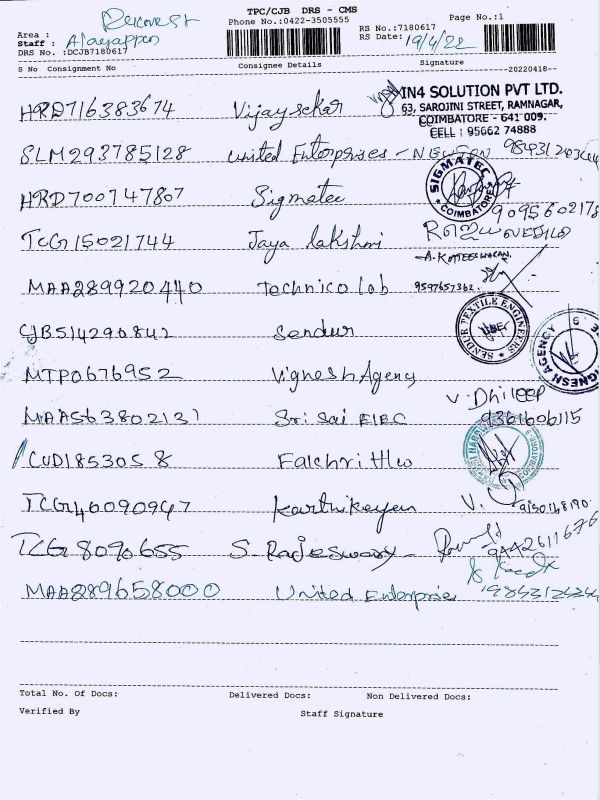 TPC/CJB DRS - CMS
Phone No.:0422-3505555
Page No.:1
Area :
Staff : Alayappan
DRS No. :DCJB7180617
RS No.:7180617
RS Date: 19/4/22
S No Consignment No Consignee Details Signature
--20220418--
HRD716383674 Vijaysekar
IN4 SOLUTION PVT LTD.
63, SAROJINI STREET, RAMNAGAR,
COIMBATORE - 641 009.
CELL : 95662 74888
SLM293785128 United Enterprises
HRD700747807 Sigmatec
SIGMATEC
COIMBATORE
TCG15021744 Jaya lakshmi
MAA289920440 Technico lab 9597657362
CJB514290842 Sendur
SENDUR TEXTILE ENGINEERS
MTP0676952 Vignesh Agency
V. Dhileep
MAA563802131 Sri Sai ElEC 9361606115
CUD1853058
TCG40090947 Karthikeyan
TCG8090655 S. Rajeswary 9442611676
MAA289658000 United Enterprise
Total No. Of Docs: Delivered Docs: Non Delivered Docs:
Verified By Staff Signature